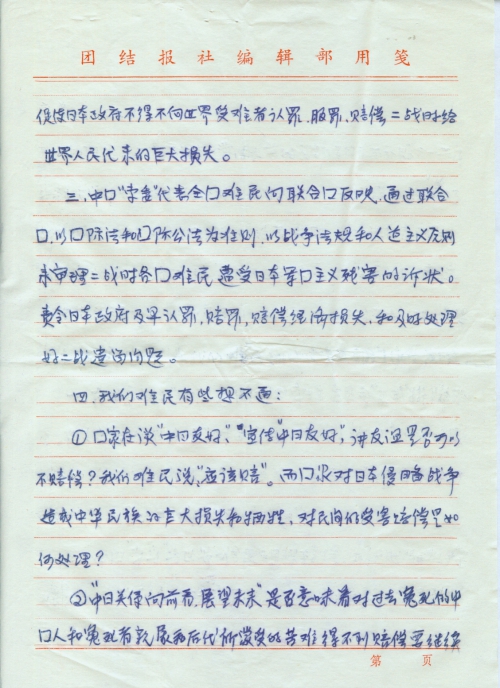 团结报社编辑部用笺
促使日本政府不得不向世界受难者认罪、服罪、赔偿二战时给
世界人民代来的巨大损失。
三、中口"常委"代表全口难民向联合口反映,通过联合
口,以口际法和口际公法为准则,以战争法规和人道主义原则
来审理二战时各口难民遭受日本军口主义残害的诉状。
责令日本政府及早认罪,赔罪,赔偿经济损失,和及时处理
好二战遗留问题。
四、我们难民有些想不通:
①口家在谈"中日友好"、"宣传"中日友好",讲友谊是否可以
不赔偿?我们难民说,"应该赔"。而口家对日本侵略战争
造成中华民族的巨大损失和牺牲,对民间的受害赔偿是如
何处理?
②"中日关係向前看,展望未来"是否意味着对过去冤死的中
口人和冤死者亲属和后代所蒙受的苦难得不到赔偿要继续
第 页